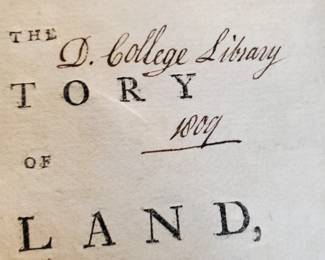 THE
D. College Library
TORY
1809
OF
LAND,